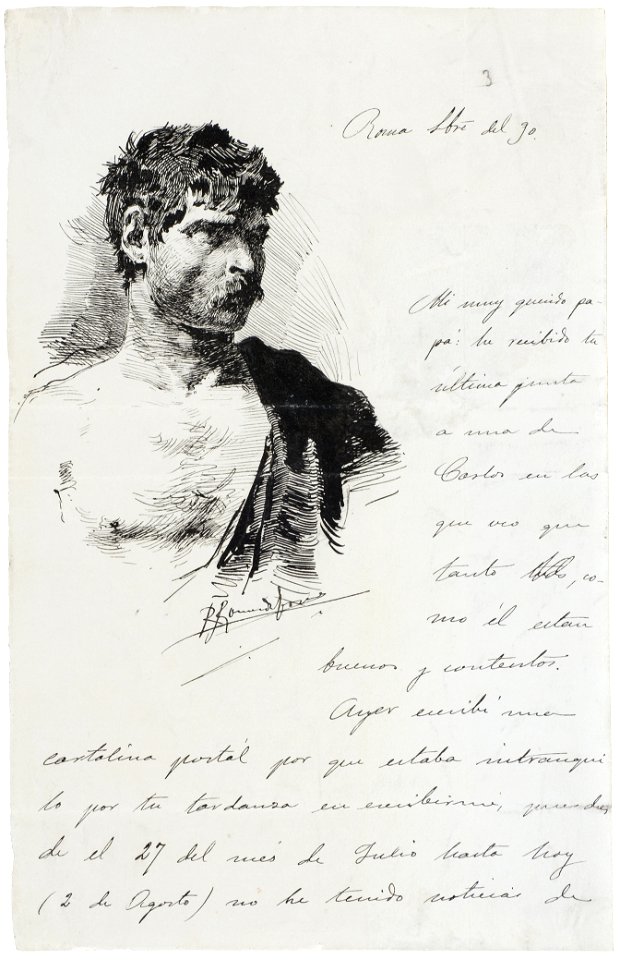 3
Roma 8bre del 90.
Mi muy querido pa-
pá: he recibido tu
última junta
a una de
Carlos en las
que veo que
tanto Vds, co-
mo él estan
buenos y contentos.
Ayer escribí una
cartolina postál por que estaba intranqui
lo por tu tardanza en escribirme, pues des
de el 27 del més de Julio hasta hoy
(2 de Agosto) no he tenido noticias de